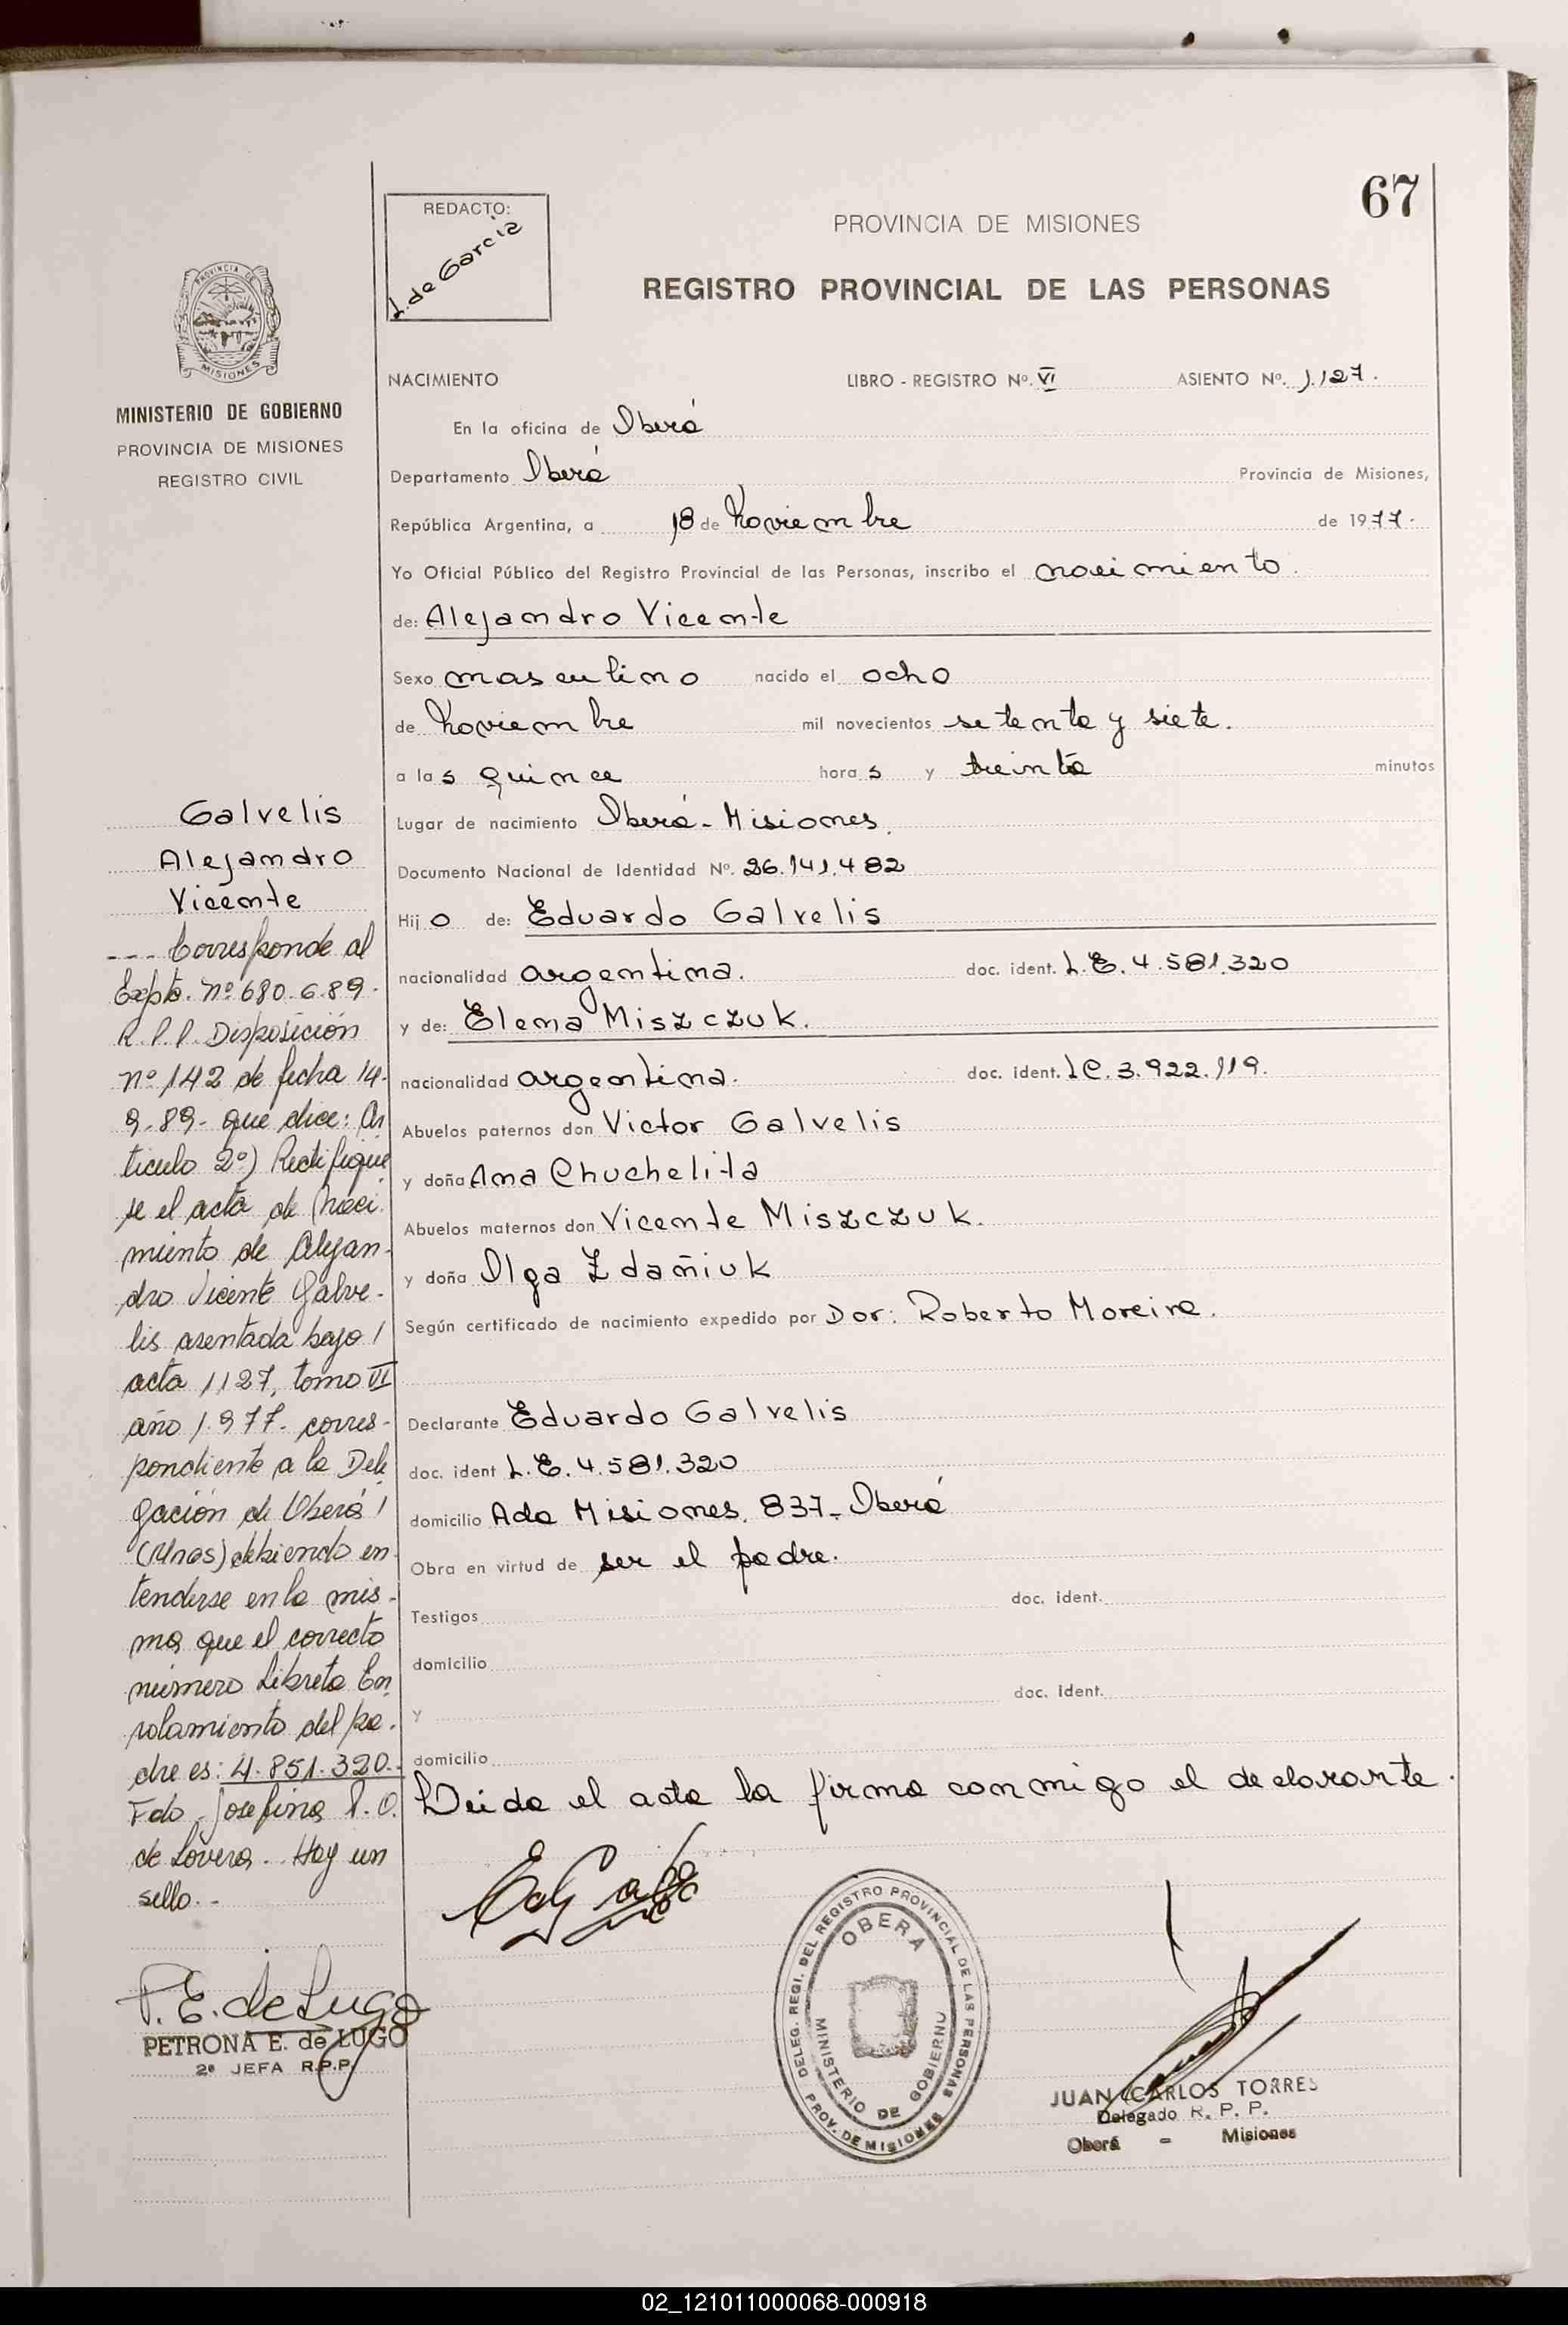 67
REDACTO:
I. de Garcia
PROVINCIA DE MISIONES
REGISTRO PROVINCIAL DE LAS PERSONAS
PROVINCIA DE
MISIONES
MINISTERIO DE GOBIERNO
PROVINCIA DE MISIONES
REGISTRO CIVIL
NACIMIENTO LIBRO - REGISTRO Nº. VI ASIENTO Nº. 1.127.
En la oficina de Oberá
Departamento Oberá Provincia de Misiones,
República Argentina, a 18 de Noviembre de 1977.
Yo Oficial Público del Registro Provincial de las Personas, inscribo el nacimiento.
de: Alejandro Vicente
Sexo masculino nacido el ocho
de Noviembre mil novecientos setenta y siete.
a las quince horas y treinta minutos
Lugar de nacimiento Oberá - Misiones.
Documento Nacional de Identidad Nº. 26.141.482
Hijo de: Eduardo Galvelis
nacionalidad argentina. doc. ident. L.E. 4.581.320
y de: Elena Miszczuk.
nacionalidad argentina. doc. ident. LC. 3.922.119.
Abuelos paternos don Victor Galvelis
y doña Ana Chuchelita
Abuelos maternos don Vicente Miszczuk.
y doña Olga Zdañiuk
Según certificado de nacimiento expedido por Dor: Roberto Moreira.
Declarante Eduardo Galvelis
doc. ident L.E. 4.581.320
domicilio Avda Misiones. 837 - Oberá
Obra en virtud de ser el padre.
Testigos doc. ident.
domicilio
y doc. ident.
domicilio
Leida el acta la firma conmigo el declarante.
Galvelis
Alejandro
Vicente
--- Corresponde al
Expte. nº 680.6.89.
R.P.P. Disposición
nº 142 de fecha 14-
9-89- que dice: Ar
tículo 2º) Rectifíque
se el acta de Naci
miento de Alejan-
dro Vicente Galve-
lis asentada bajo /
acta 1127, tomo VI
año 1.977- corres-
pondiente a la Dele
gación de Oberá /
(Mnes) debiendo en-
tenderse en la mis-
ma que el correcto
número Libreta En
rolamiento del pa-
dre es: 4.851.320.-
Fdo. Josefina P. O.
de Lovera. Hay un
sello.-
P.E. de Lugo
PETRONA E. de LUGO
2º JEFA R.P.P.
DELEG. REGI. DEL REGISTRO PROVINCIAL DE LAS PERSONAS
OBERA
MINISTERIO DE GOBIERNO
PROV. DE MISIONES
JUAN CARLOS TORRES
Delegado R. P. P.
Oberá - Misiones
02_121011000068-000918